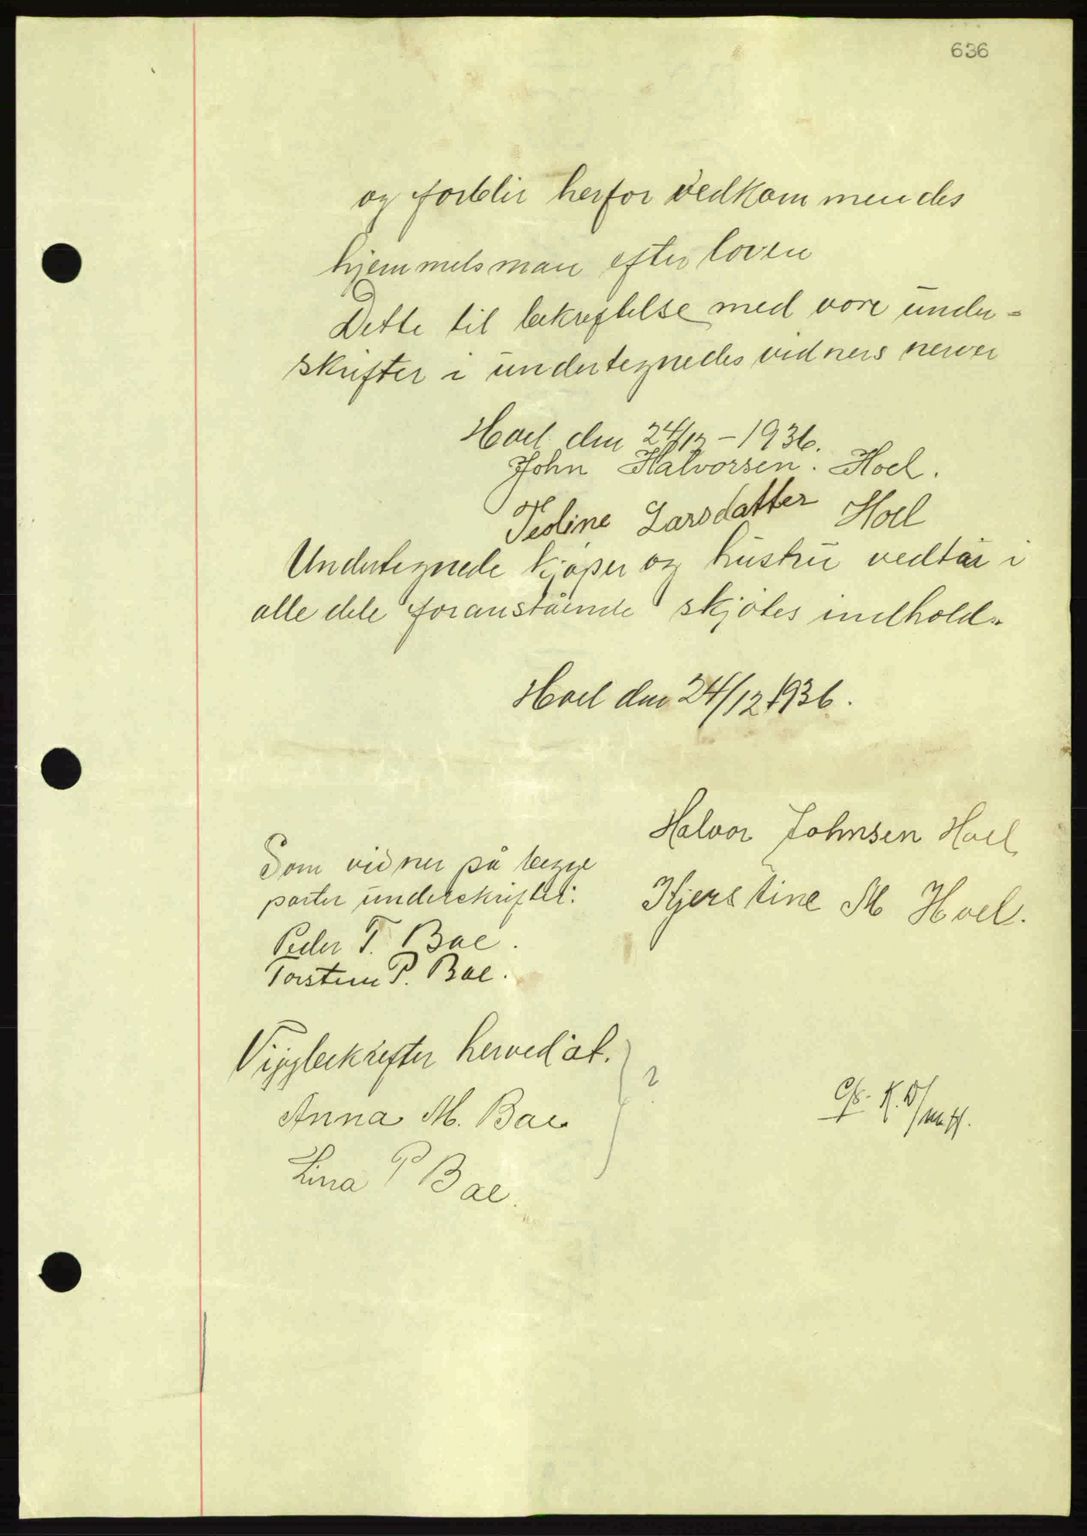 636
og forblir herfor vedkommendes
hjemmelsman efter loven
Dette til bekreftelse med vore under=
skrifter i undertegnedes vidners nerver
Hoel den 24/12 - 1936.
John Halvorsen. Hoel.
Teoline Larsdatter Hoel
Undertegnede kjøper og hustru vedtar i
alle dele foranstående skjøtes indhold.
Hoel den 24/12 1936.
Halvor Johnsen Hoel
Kjerstine M Hoel.
Som vidner på begge
parter underskrifter:
Peder T. Bae.
Torstein P. Bae.
Vi bekrefter herved at.
Anna M. Bae
Lina P Bae.
?